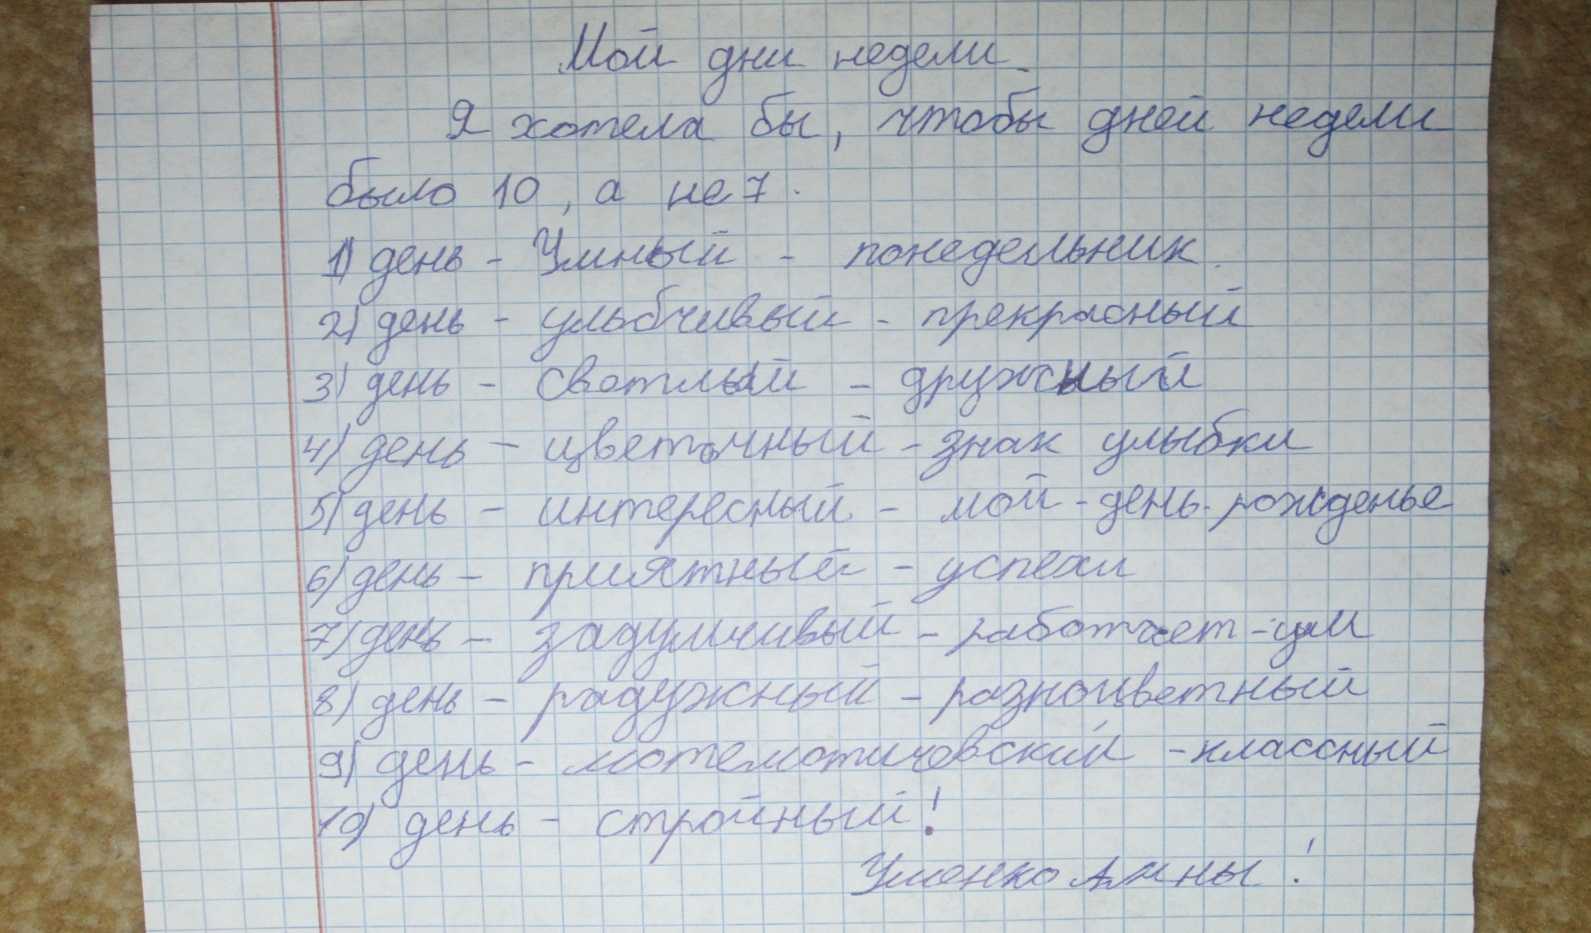 Мой дни недели.
Я хотела бы, чтобы дней недели
было 10, а не 7.
1) день - Умный - понедельник.
2) день - улыбчивый - прекрасный
3) день - светлый - дружный
4) день - цветочный - знак улыбки
5) день - интересный - мой - день - рожденье
6) день - приятный - успехи
7) день - задумчивый - работает - ум
8) день - радужный - разноцветный
9) день - математический - классный
10) день - стройный!
Анны!